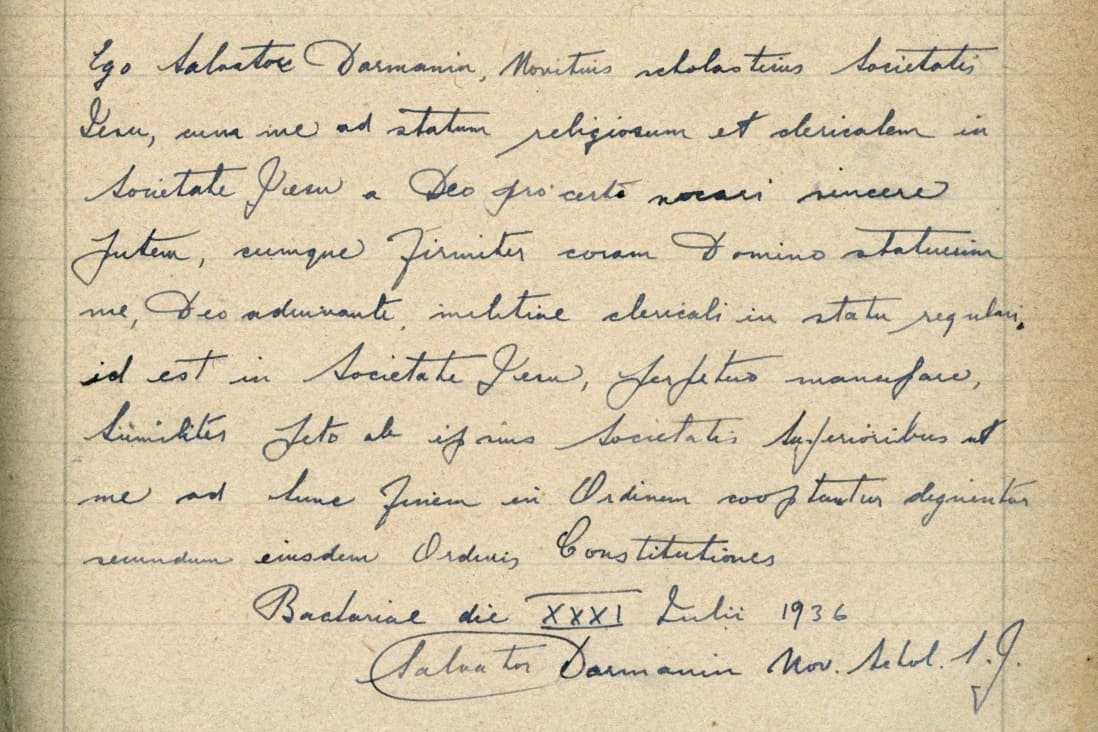 Ego Salvator Darmanin, Novitius scholasticus Societatis
Iesu, cum me ad statum religiosum et clericalem in
Societate Iesu a Deo pro certo vocari sincere
putem, cumque firmiter coram Domino statuerim
me, Deo adiuvante, militiae clericali in statu regulari,
id est in Societate Iesu, perpetuo mancipare,
similiter peto ab ipsius Societatis Superioribus ut
me ad hunc finem in Ordinem cooptantur dignentur
secundum eiusdem Ordinis Constitutiones
die XXXI Iulii 1936
Salvator Darmanin Nov. Schol. S. J.